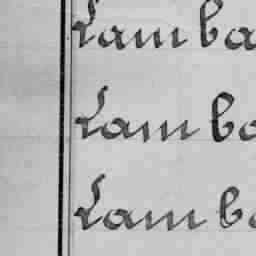 Lam ba
Lam ba
Lam ba